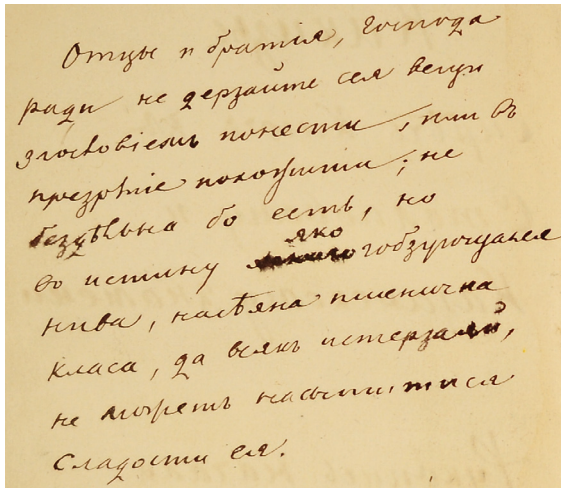 Отцы и братія, Господа
ради не дерзайте сея вещи
злословіемъ понести, или въ
презрѣніе положити; не
бездѣльна бо есть, но
во истину яко гобзующаяся
нива, насѣяна пшенична
класа, да всякъ истерзаяй,
не можетъ насытитися
сладости ея.